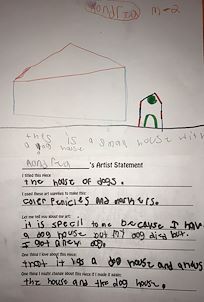 m-2
this is a small house with
a dog house
's Artist Statement
I titled this piece:
the house of dogs.
I used these art supplies to make this:
coler penicles and markers.
Let me tell you about my art:
it is specil to me because I have
a dog house but my dog died but
I got a new dog.
One thing I love about this piece:
that it has a dog house and
One thing I might change about this piece if I made it again:
the house and the dog house.